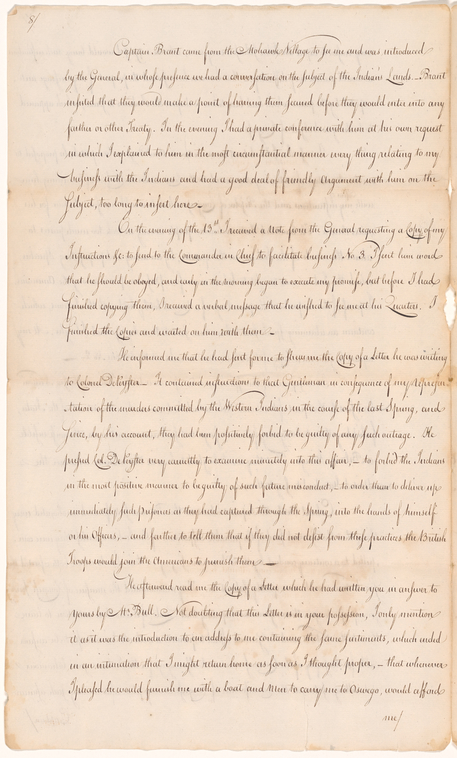 8/
Captain Brant came from the Mohawk Village to see me and was introduced
by the General, in whose presence we had a conversation on the subject of the Indians Lands. — Brant
insisted that they would make a point of having them secured before they would enter into any
further or other Treaty. In the evening I had a private conference with him at his own request
in which I explained to him in the most circumstantial manner every thing relating to my
business with the Indians and had a good deal of friendly Argument with him on the
Subject, too long to insert here. —
On the evening of the 13th I received a Note from the General requesting a Copy of my
Instructions &c: to send to the Commander in Chief to facilitate business No. 3. I sent him word
that he should be obeyed, and early in the morning began to execute my promise, but before I had
finished copying them, I received a verbal message that he wished to see me at his Quarters. I
finished the Copies and waited on him with them —
He informed me that he had sent for me to shew me the Copy of a Letter he was writing
to Colonel DePeyster — It contained instructions to that Gentleman in consequence of my represen-
tation of the murders committed by the Western Indians in the course of the last Spring, and
Since, by his account, they had been positively forbid to be guilty of any such outrage. He
pressed Col. DePeyster very earnestly to examine minutely into this affair, — to forbid the Indians
in the most positive manner to be guilty of such future misconduct, — to order them to deliver up
immediately such prisoners as they had captured through the Spring, into the hands of himself
or his Officers, — and farther to tell them that if they did not desist from these practices the British
Troops would join the Americans to punish them —
He afterward read me the Copy of a Letter which he had written you in answer to
yours by Mr. Bull. Not doubting that this Letter is in your possession, I only mention
it as it was the introduction to an address to me containing the same sentiments, which ended
in an intimation that I might return home as soon as I thought proper, — that whenever
I pleased he would furnish me with a boat and Men to carry me to Oswego, would afford
me/